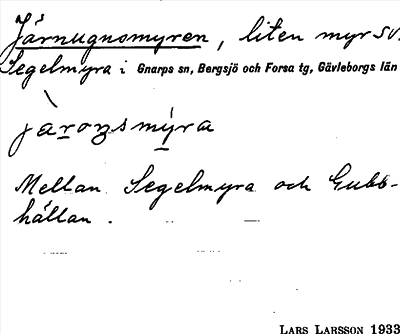 Järnugnsmyren, liten myr SV.
Segelmyra i Gnarps sn, Bergsjö och Forsa tg, Gävleborgs län
Mellan Segelmyra och Gubb-
hällan.
LARS LARSSON 1933